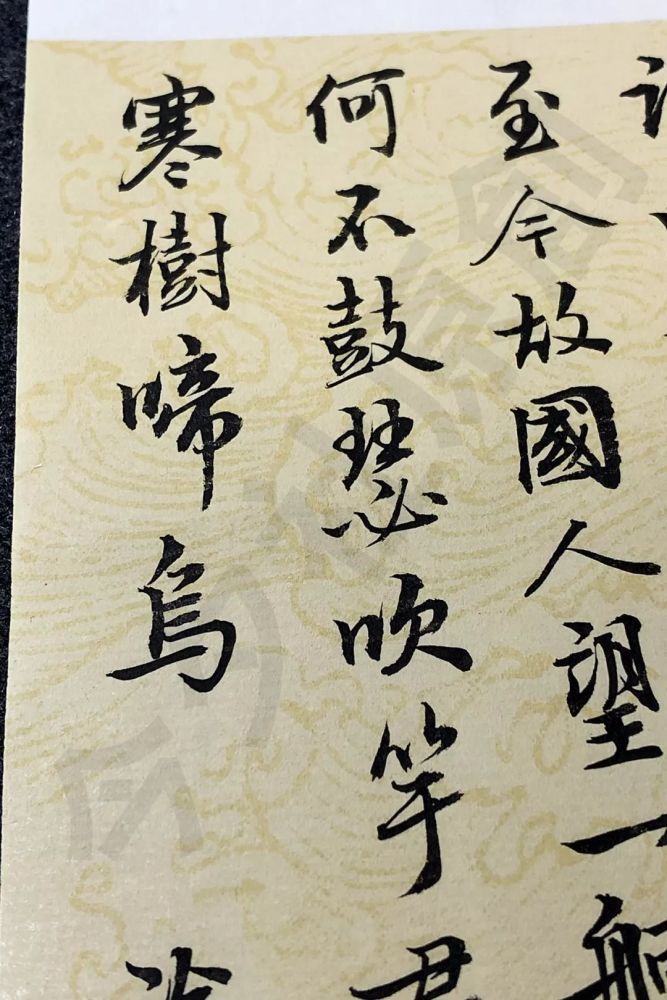 至今故國人望一
何不鼓瑟吹竽
寒樹啼烏